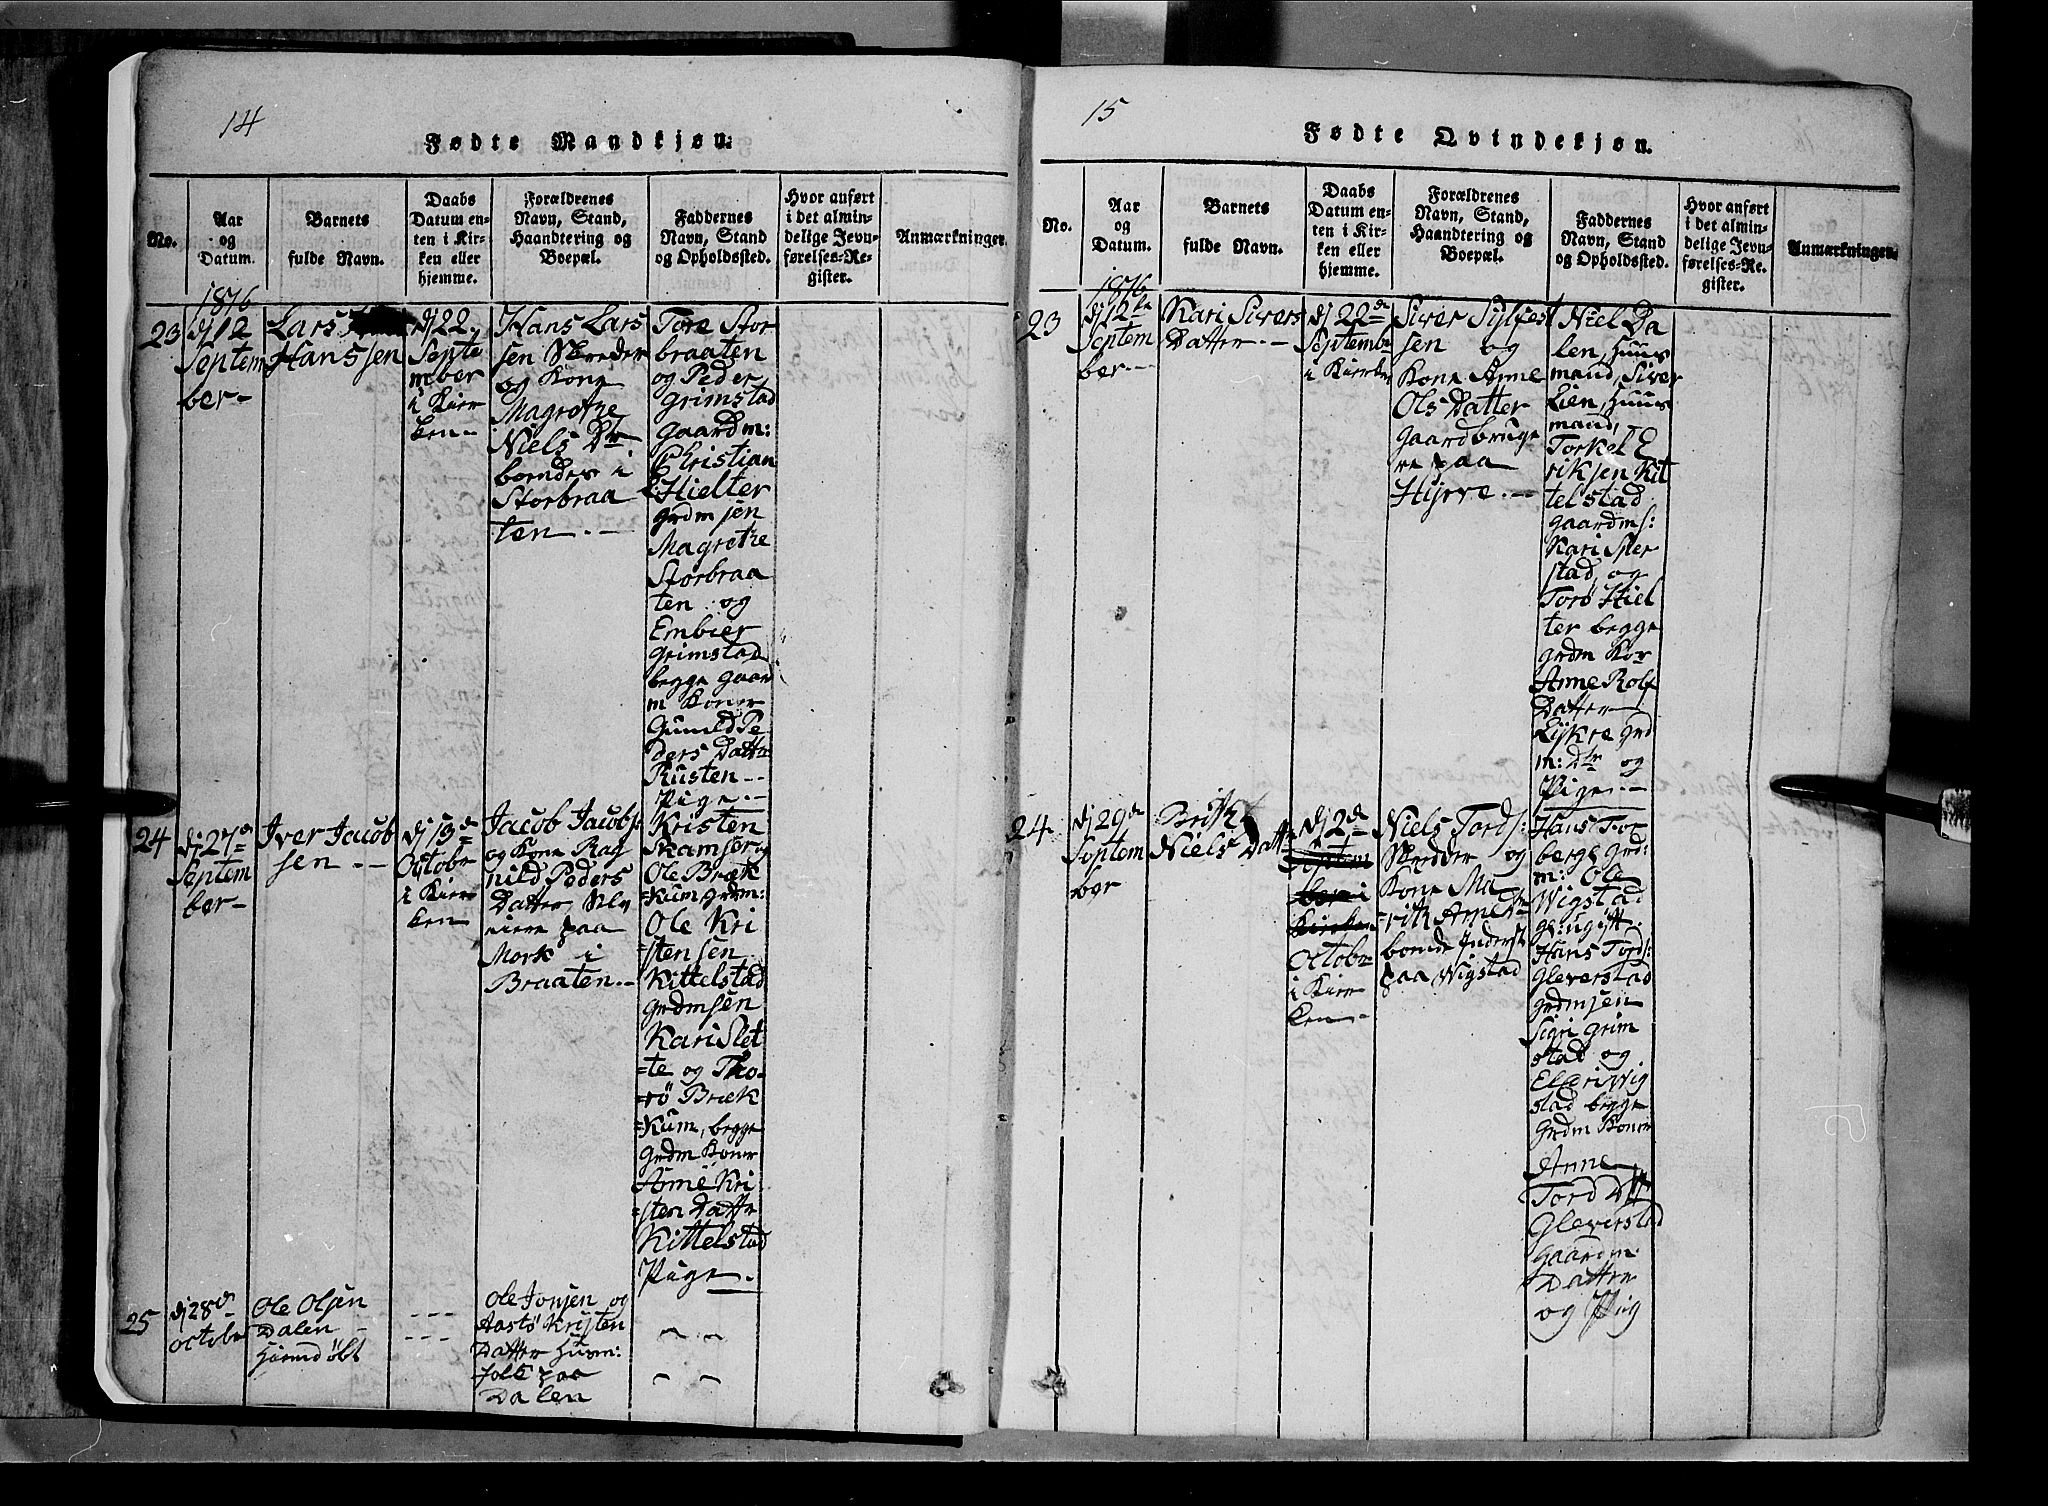 14
Fødte Mandkjøn:
No.
Aar og Datum.
Barnets fulde Navn.
Daabs Datum enten i Kirken eller hjemme.
Forældrenes Navn, Stand, Haandtering og Boepæl.
Faddernes Navn, Stand og Opholdssted.
Hvor anført i det almindelige Jevnførelses-Register.
Anmærkninger.
1816
23
dj 12
Septem
ber-
Lars
Hanssen
dj 22
Septe
mber
i Kier
ken-
Hans Lars
sen Skreder
og Kone
Magrethe
Niels Dtr
boendes i
Storbraa
ten.-
Tore Stor
braaten
og Peder
Grimstad
gaardm:
Christian
Hielter
grdm sen
Magrethe
Storbraa
ten og
Embier
Grimstad
begge gaar
m Koner
Guneld Pe
ders Datter
Rusten--
Pige.-
24
dj 27de
Septem
ber-
Iver Jacob
sen.-
dj 13de
Octobr
i Kier
ken
Jacob Jacobs:
og Kone Rag
nild Peders
Datter Selv
eiere paa
Mork i
Braaten.-
Kristen
Skamsor og
Ole Bræk
=kum grdm:
Ole Kri
=stensen
Kittelstad
grdmsen
Kari Slet
=te og Tho-
=rö Bræk
=kum, begge
grdm Koner
Anne Kri
=sten Datter
Kittelstad
Pige.
25
dj 28de
octobr
Ole Olsen
Dalen
Hiemdöbt
Ole Jonsen og
Aastö Kristen
Datter Husm:
folk paa
Dalen
15
Fødte Qvindekjøn.
No.
Aar og Datum.
Barnets fulde Navn.
Daabs Datum enten i Kirken eller hjemme.
Forældrenes Navn, Stand, Haandtering og Boepæl.
Faddernes Navn, Stand og Opholdssted.
Hvor anført i det almindelige Jevnførelses-Register.
Anmærkninger.
1816
23
dj 12te
Septem
ber.-
Kari Sivers
Datter.-
dj 22de
Septembr
i Kierken
Siver Sylfest
sen og
Kone Anne
Ols Datter
Gaardbruge
re paa
Hyrve.-
Niel Da
len, Huus
mand, Siver
Lien, Huus
mand,
Torkel E
riksen Kit
telstad
gaardms:
Kari Sler
stad, og
Torö Hiel
ter begge
grdm Kor
Anne Rolf
Datter
Lykre grd
m: Dtr og
Pige.-
24
dj 29de
Septem
ber
Brit
Niels Datter
dj 2de
Septem
ber i
Kirken
Octobr
i Kier
ken-
Niels Tords:
Skredder og
Kone Ma
=rit Arne Dtr
boende Inderst
paa Wigstad
Hans Tor
berge grd:
m: Ole
Wigstad
g: ugift
Hans Tords:
Gleverstad
grdmsen
Sigri Grim
stad og
Elleri Wig
stad begge
grdm Koner
Anne
Tord Dtr
Gleverstad
Gaardm
Datter
og Pig